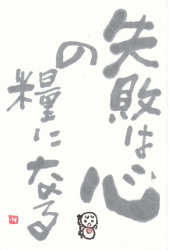 失敗は心
の糧になる